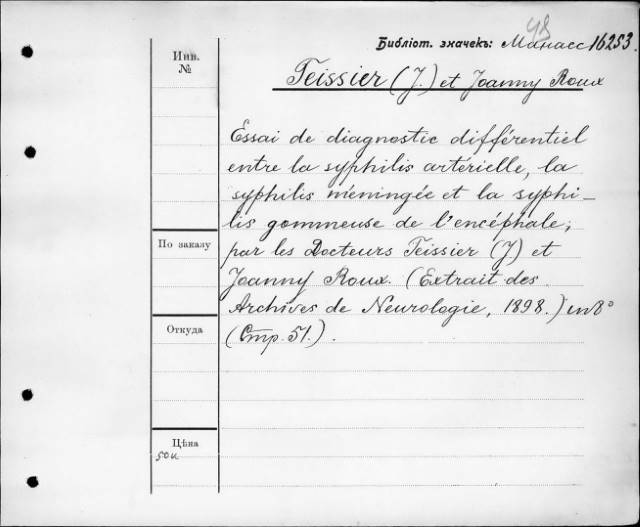 98
Библіот. значекъ: Минасс 16253.
Инв.
№
Teissier (J.) et Joanny Roux
Essai de diagnostic différentiel
entre la syphilis artérielle, la
syphilis méningée et la syphi-
lis gommeuse de l'encéphale;
par les Docteurs Teissier (J) et
Joanny Roux. (Extrait des
Archives de Neurologie, 1898.) in 8°
(Стр. 51.).
По заказу
Откуда
Цѣна
50 к